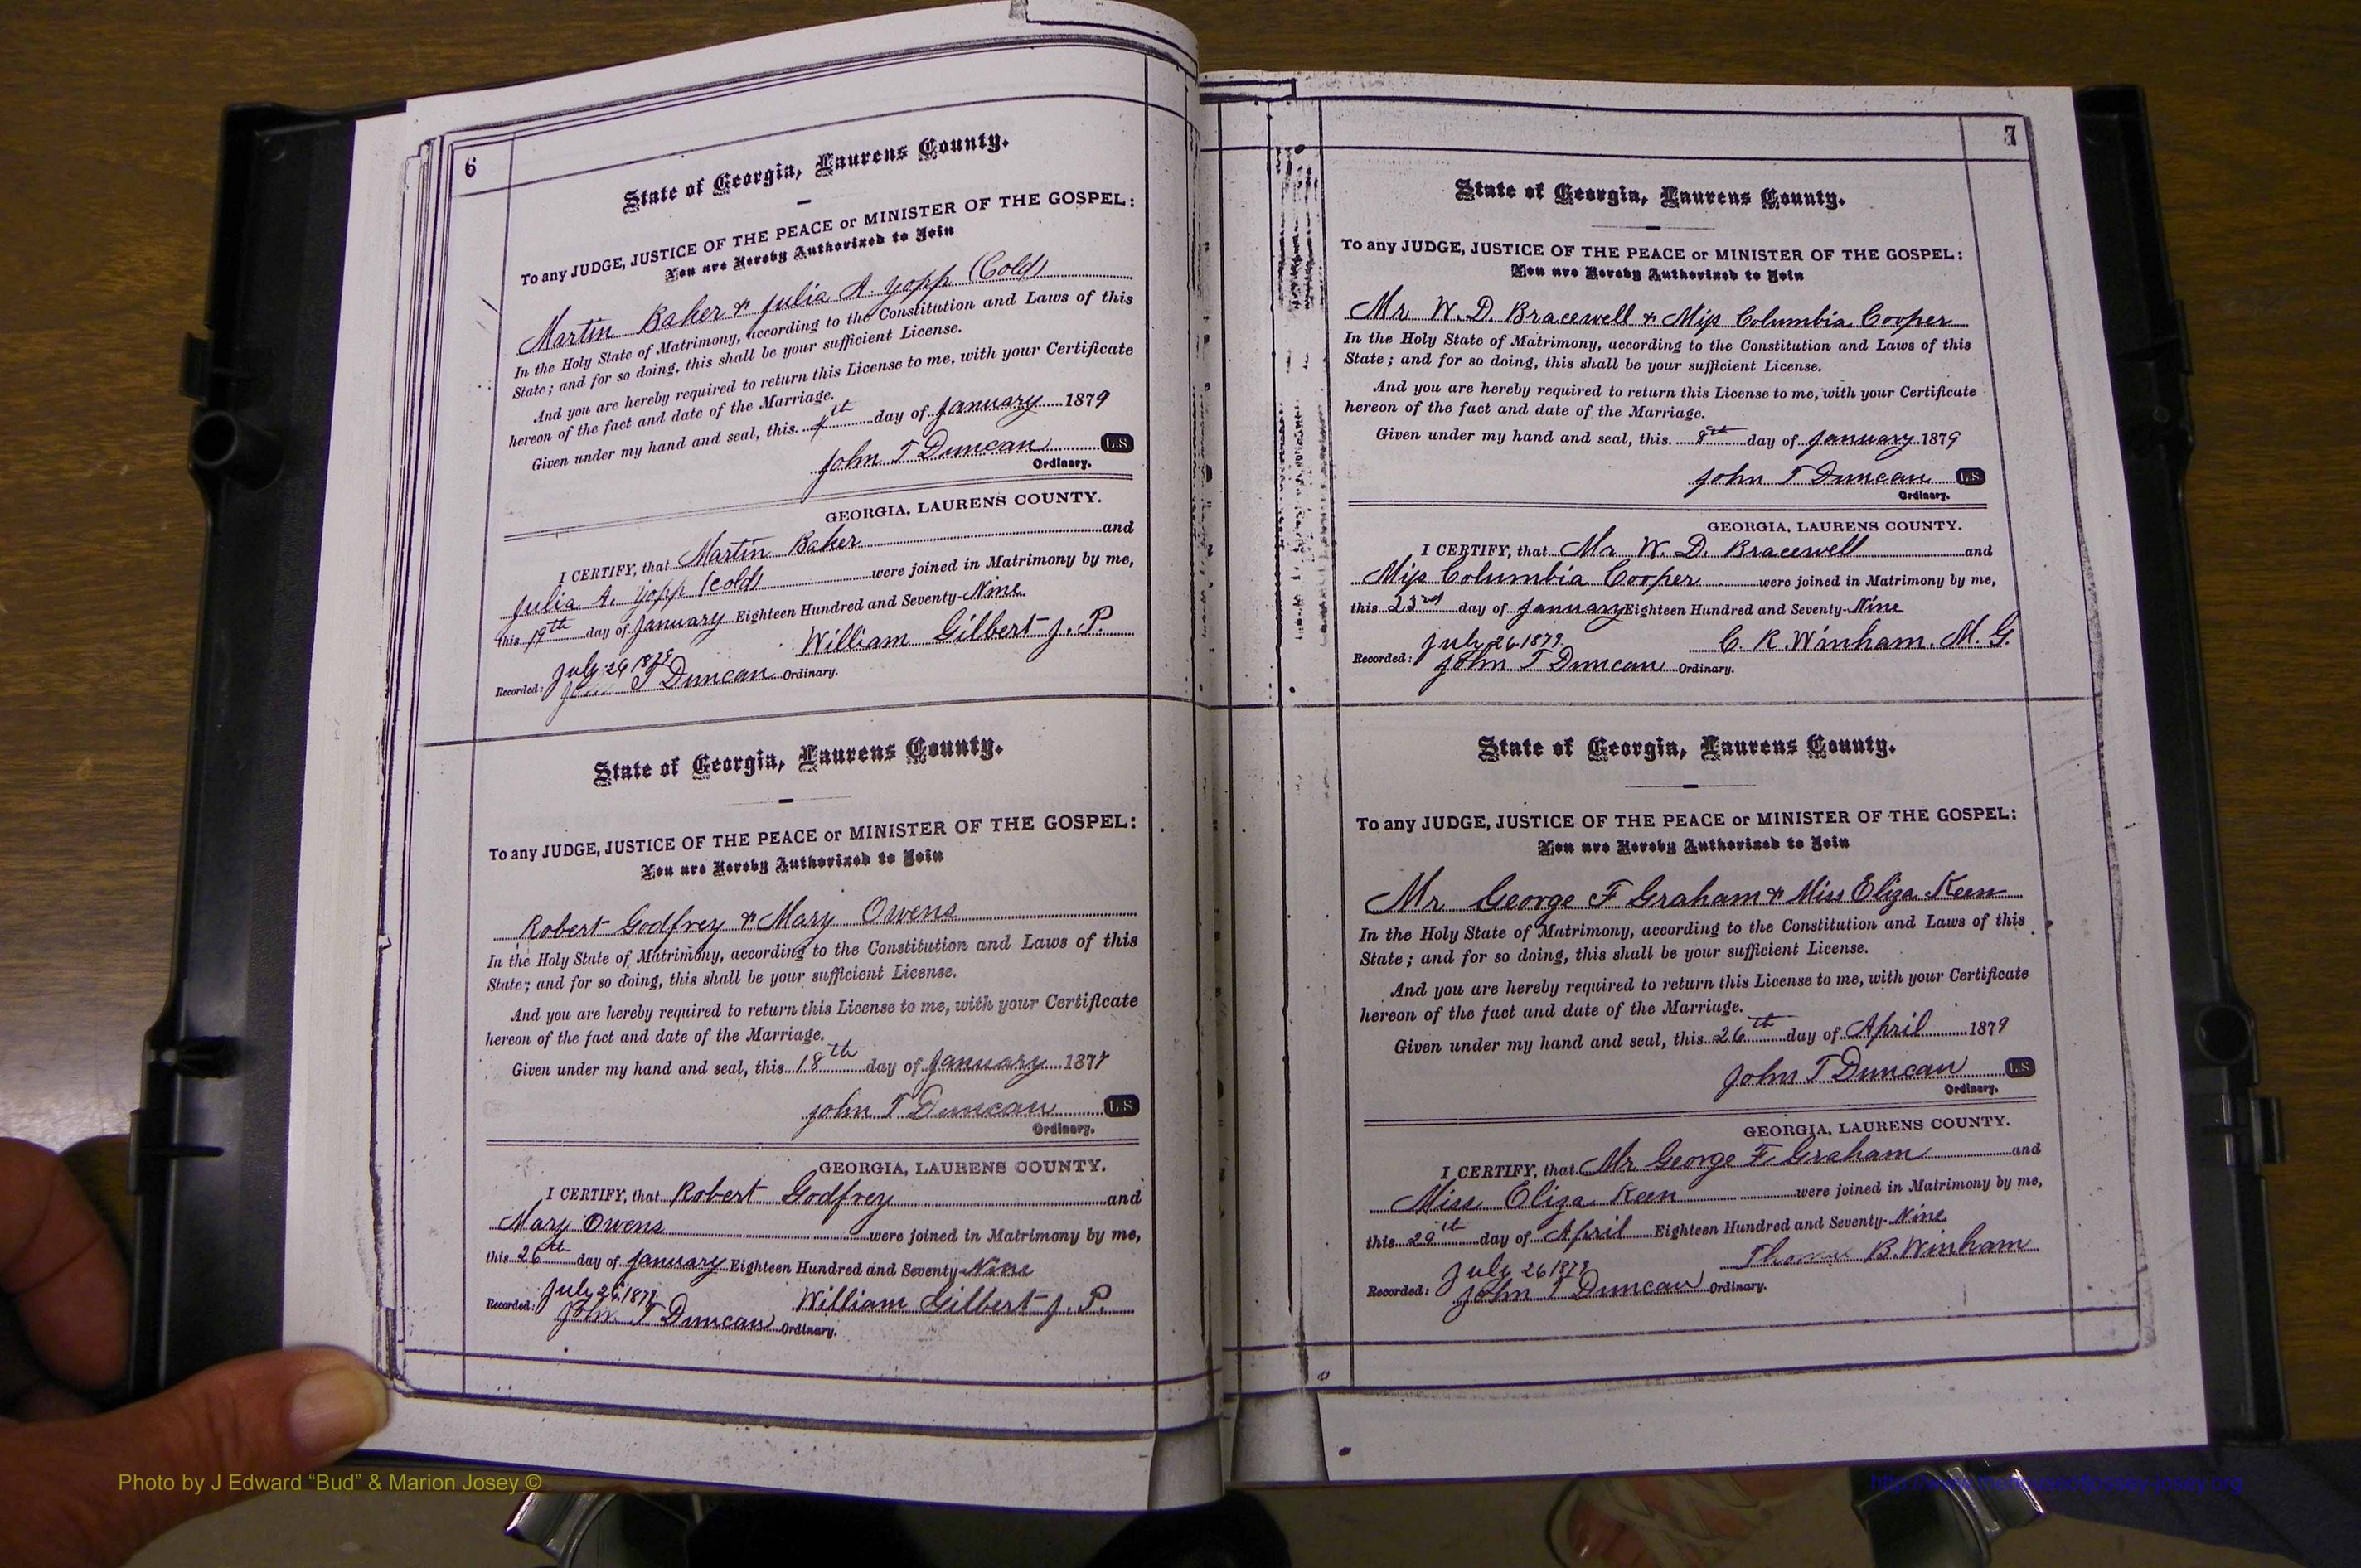 6
State of Georgia, Laurens County.
To any JUDGE, JUSTICE OF THE PEACE or MINISTER OF THE GOSPEL:
You are Hereby Authorized to Join
Martin Baker & Julia A. Yopp (Cold)
In the Holy State of Matrimony, according to the Constitution and Laws of this
State; and for so doing, this shall be your sufficient License.
And you are hereby required to return this License to me, with your Certificate
hereon of the fact and date of the Marriage.
Given under my hand and seal, this 4th day of January 1879
John T Duncan L.S
Ordinary.
GEORGIA, LAURENS COUNTY.
I CERTIFY, that Martin Baker and
Julia A. Yopp (Cold) were joined in Matrimony by me,
this 19th day of January Eighteen Hundred and Seventy-Nine
William Gilbert J. P.
July 26 1879
Recorded: John T Duncan Ordinary.
State of Georgia, Laurens County.
To any JUDGE, JUSTICE OF THE PEACE or MINISTER OF THE GOSPEL:
You are Hereby Authorized to Join
Robert Godfrey & Mary Owens
In the Holy State of Matrimony, according to the Constitution and Laws of this
State; and for so doing, this shall be your sufficient License.
And you are hereby required to return this License to me, with your Certificate
hereon of the fact and date of the Marriage.
Given under my hand and seal, this 18th day of January
John T Duncan L.S
Ordinary.
GEORGIA, LAURENS COUNTY.
I CERTIFY, that Robert Godfrey and
Mary Owens were joined in Matrimony by me,
this 26th day of January Eighteen Hundred and Seventy-Nine
July 26 1879 William Gilbert J. P.
Recorded: John T Duncan Ordinary.
7
State of Georgia, Laurens County.
To any JUDGE, JUSTICE OF THE PEACE or MINISTER OF THE GOSPEL:
You are Hereby Authorized to Join
Mr W. D. Bracewell & Miss Columbia Cooper
In the Holy State of Matrimony, according to the Constitution and Laws of this
State; and for so doing, this shall be your sufficient License.
And you are hereby required to return this License to me, with your Certificate
hereon of the fact and date of the Marriage.
Given under my hand and seal, this 8th day of January 1879
John T Duncan L.S
Ordinary.
GEORGIA, LAURENS COUNTY.
I CERTIFY, that Mr W. D. Bracewell and
Miss Columbia Cooper were joined in Matrimony by me,
this 23rd day of January Eighteen Hundred and Seventy-Nine
July 26 1879 C. R. Winham. M. G.
Recorded: John T Duncan Ordinary.
State of Georgia, Laurens County.
To any JUDGE, JUSTICE OF THE PEACE or MINISTER OF THE GOSPEL:
You are Hereby Authorized to Join
Mr George F Graham & Miss Eliza Keen
In the Holy State of Matrimony, according to the Constitution and Laws of this
State; and for so doing, this shall be your sufficient License.
And you are hereby required to return this License to me, with your Certificate
hereon of the fact and date of the Marriage.
Given under my hand and seal, this 26th day of April 1879
John T Duncan L.S
Ordinary.
GEORGIA, LAURENS COUNTY.
I CERTIFY, that Mr George F. Graham and
Miss Eliza Keen were joined in Matrimony by me,
this 29th day of April Eighteen Hundred and Seventy-Nine
Thomas B. Winham
July 26 1879
Recorded: John T Duncan Ordinary.
Photo by J Edward “Bud” & Marion Josey ©